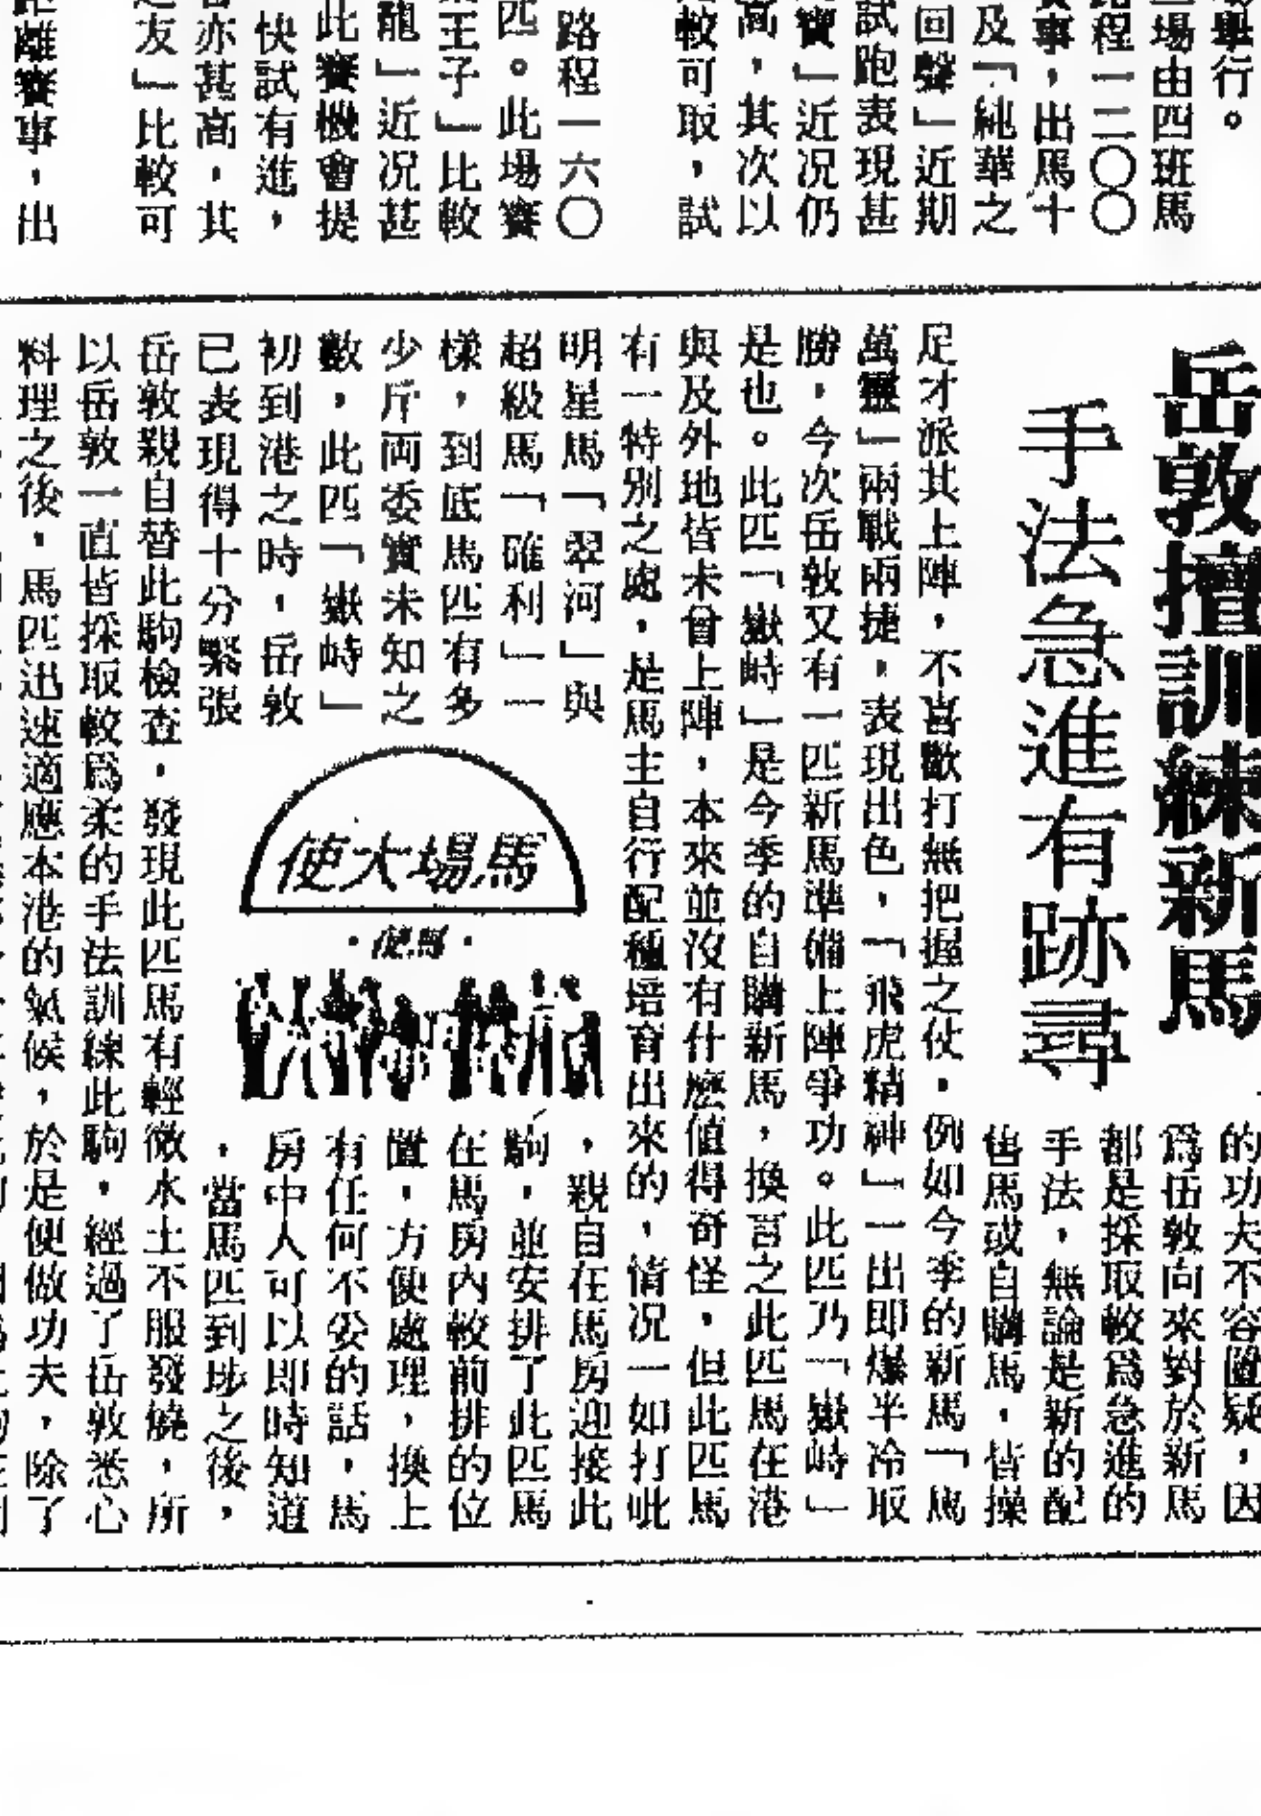 舉行。
場由四班馬
程一二〇〇
事，出馬十
及「純華之
回聲」近期
試跑表現甚
寶」近况仍
高，其次以
較可取，試
路程一六〇
匹。此場賽
王子」比較
龍」近况甚
此賽機會提
快試有進，
亦甚高，其
友」比較可
離賽事，出
岳敦擅訓練新馬
手法急進有跡尋
的功夫不容置疑，因
爲岳敦向來對於新馬
都是採取較爲急進的
手法，無論是新的配
售馬或自購馬，皆操
足才派其上陣，不喜歡打無把握之仗，例如今季的新馬「馬
萬靈」兩戰兩捷，表現出色，「飛虎精神」一出即爆半冷取
勝，今次岳敦又有一匹新馬準備上陣爭功。此匹乃「嶽峙」
是也。此匹「嶽峙」是今季的自購新馬，換言之此匹馬在港
與及外地皆未曾上陣，本來並沒有什麽值得奇怪，但此匹馬
有一特別之處，是馬主自行配種培育出來的，情况一如打吡
明星馬「翠河」與
超級馬「確利」一
樣，到底馬匹有多
少斤両委實未知之
數，此匹「嶽峙」
初到港之時，岳敦
已表現得十分緊張
馬場大使
·馬使·
，親自在馬房迎接此
駒，並安排了此匹馬
在馬房內較前排的位
置，方便處理，換上
有任何不妥的話，馬
房中人可以即時知道
，當馬匹到埗之後，
岳敦親自替此駒檢查，發現此匹馬有輕微水土不服發燒，所
以岳敦一直皆採取較爲柔的手法訓練此駒，經過了岳敦悉心
料理之後，馬匹迅速適應本港的氣候，於是便做功夫，除了